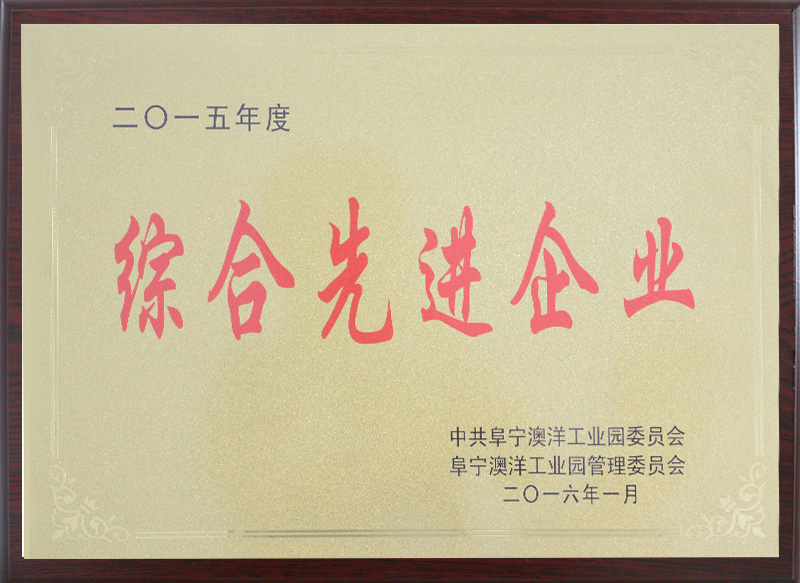 二〇一五年度
综合先进企业
中共阜宁澳洋工业园委员会
阜宁澳洋工业园管理委员会
二〇一六年一月